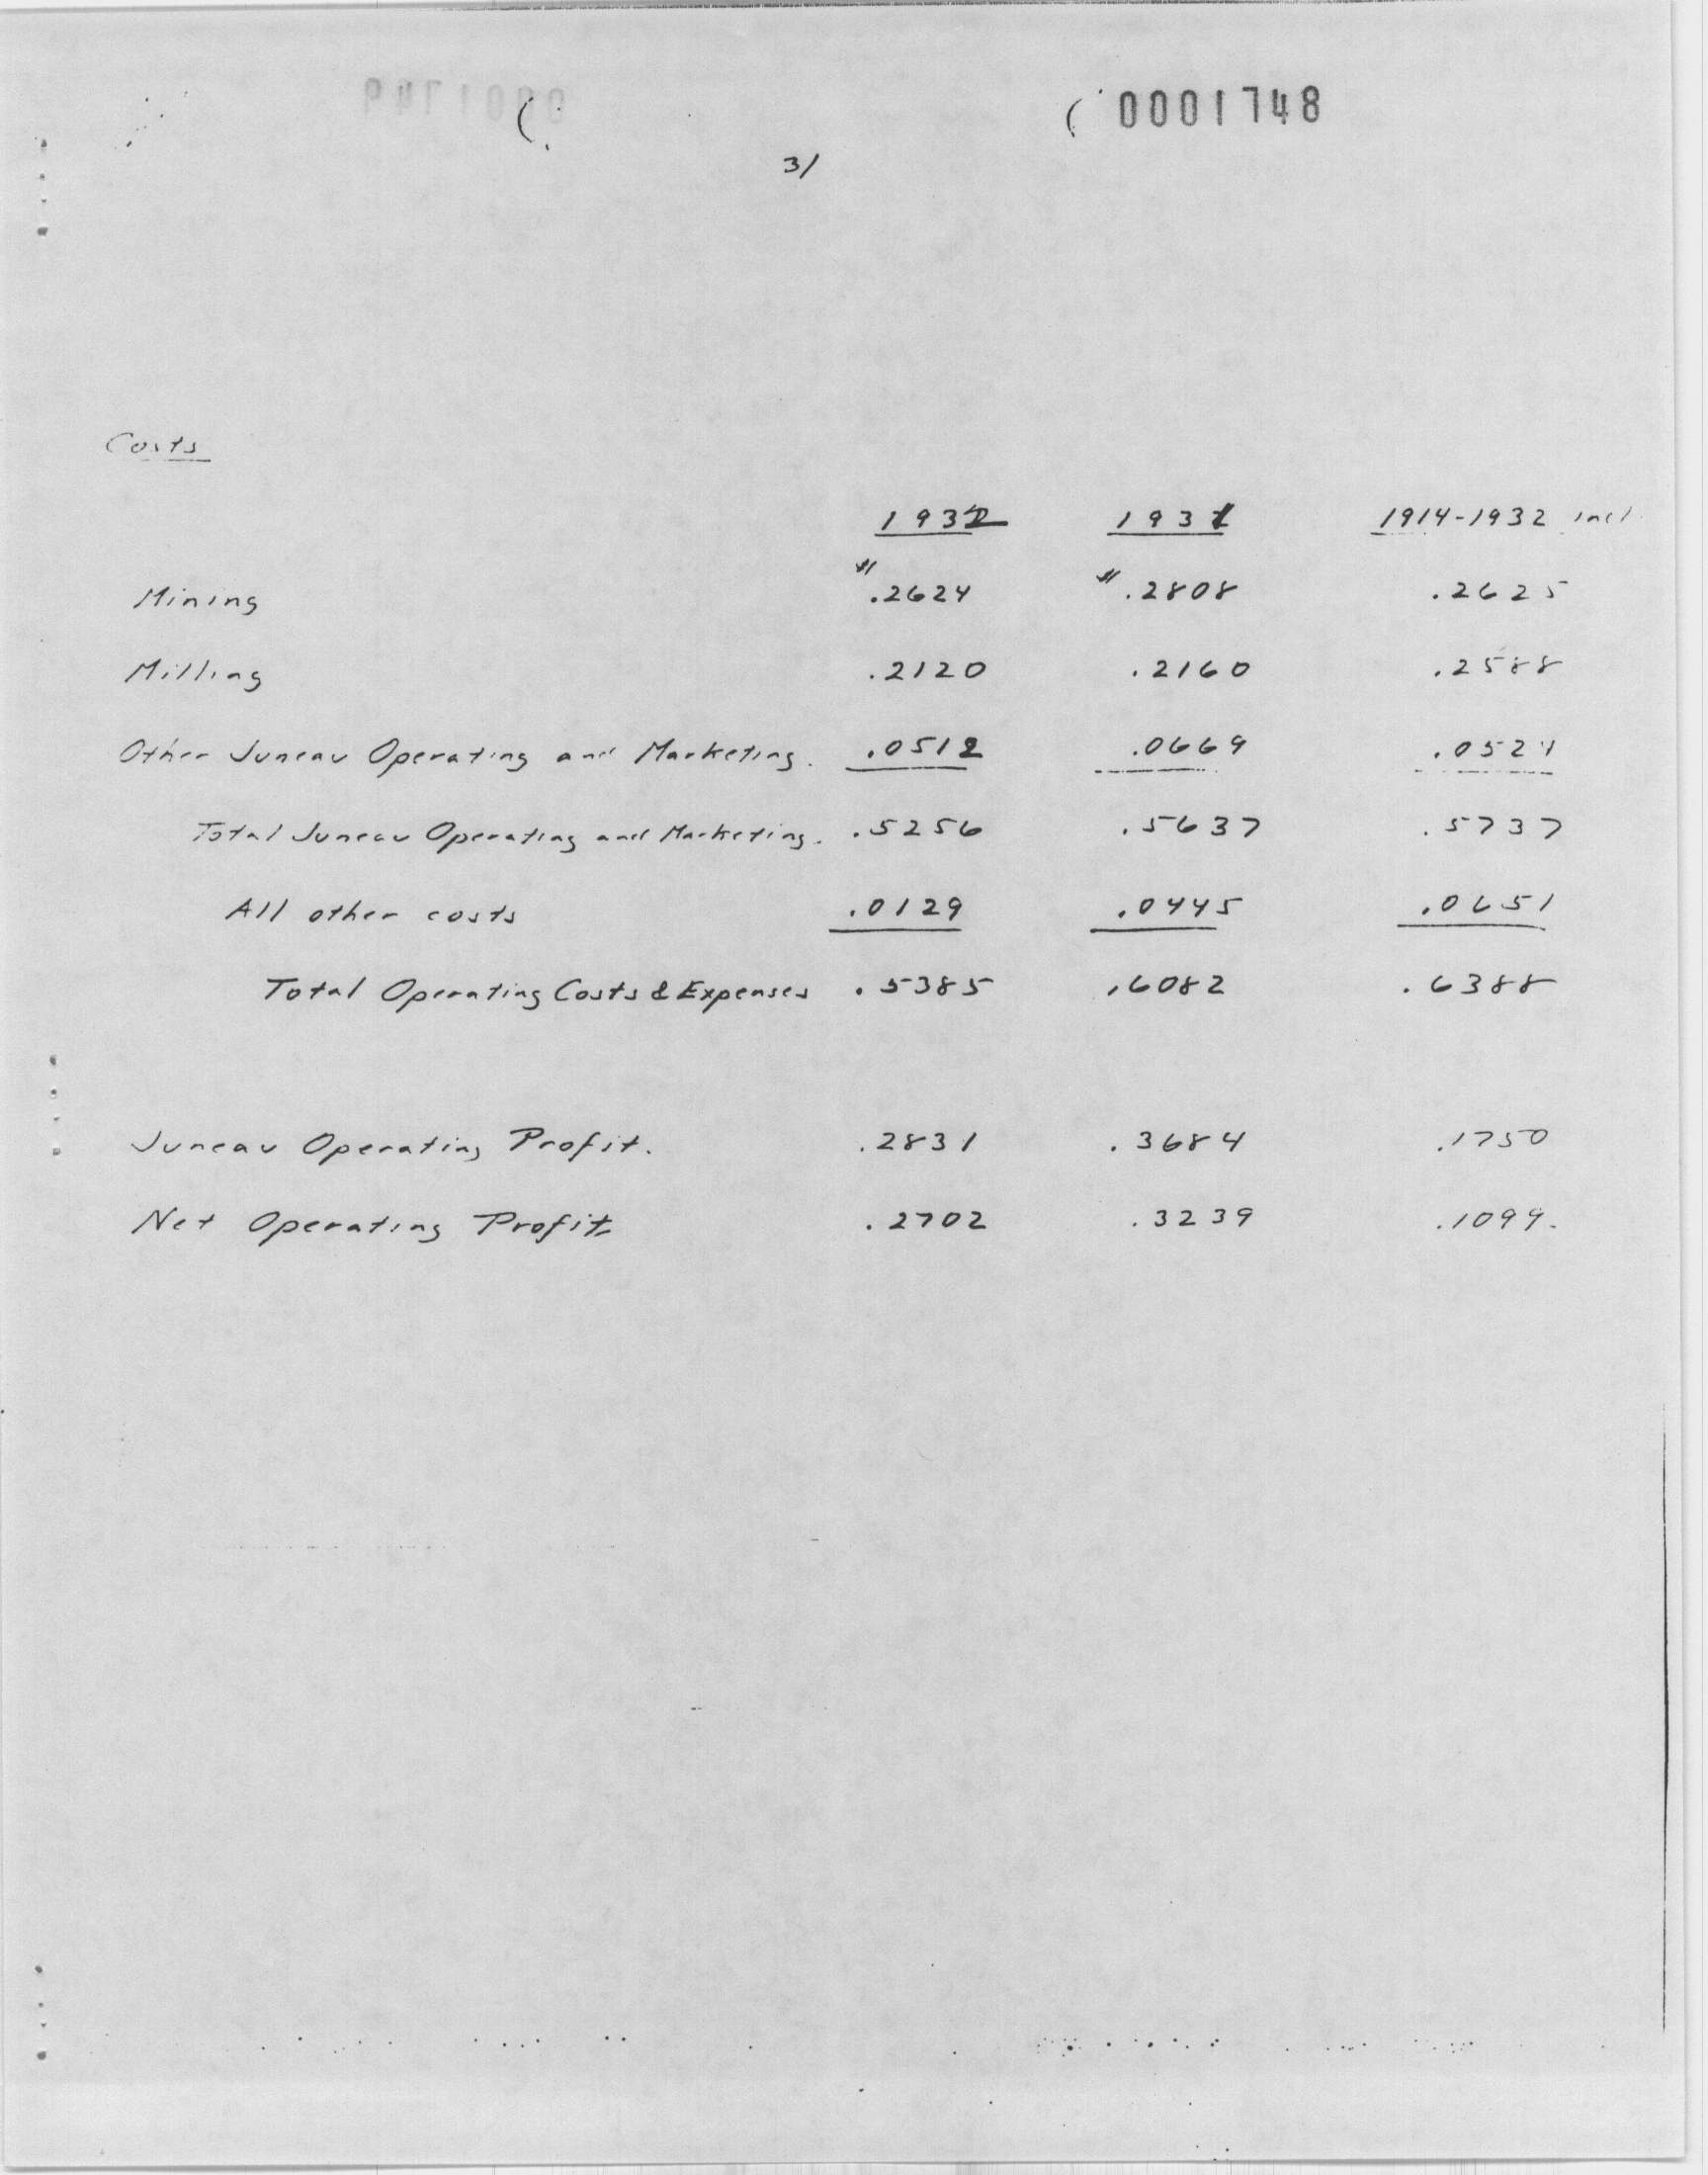 0001748
3/
Costs
1932 1931 1914-1932 incl.
Mining $.2624 $.2808 .2625
Milling .2120 .2160 .2588
Other Juneau Operating and Marketing. .0512 .0669 .0524
Total Juneau Operating and Marketing. .5256 .5637 .5737
All other costs .0129 .0445 .0651
Total Operating Costs & Expenses .5385 .6082 .6388
Juneau Operating Profit. .2831 .3684 .1750
Net Operating Profit .2702 .3239 .1099.